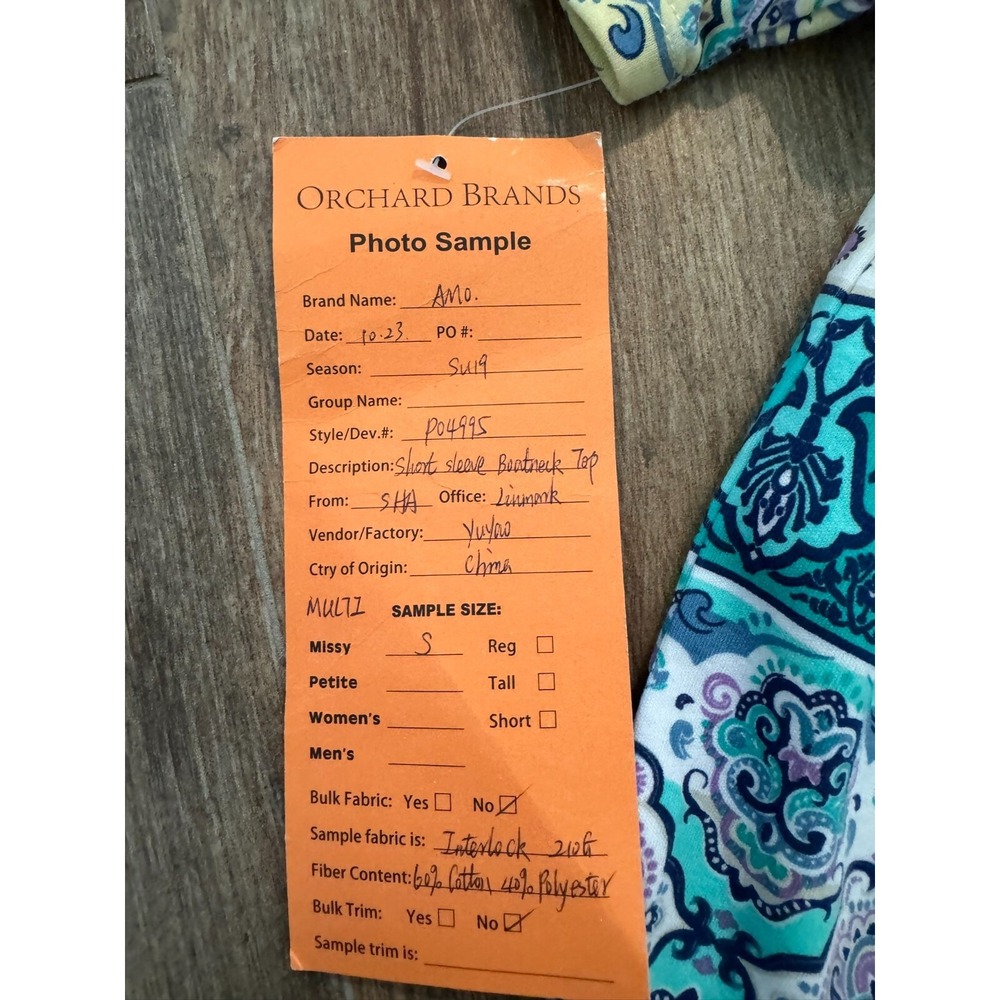 ORCHARD BRANDS
Photo Sample
Brand Name: AMO.
Date: 10.23. PO #:
Season: SU19
Group Name:
Style/Dev.#: P04995
Description: Short sleeve Boatneck Top
From: SHA Office: Linmark
Vendor/Factory: YuYao
Ctry of Origin: China
MULTI SAMPLE SIZE:
Missy S Reg
Petite Tall
Women's Short
Men's
Bulk Fabric: Yes No
Sample fabric is: Interlock 210G
Fiber Content: 60% Cotton 40% Polyester
Bulk Trim: Yes No
Sample trim is: